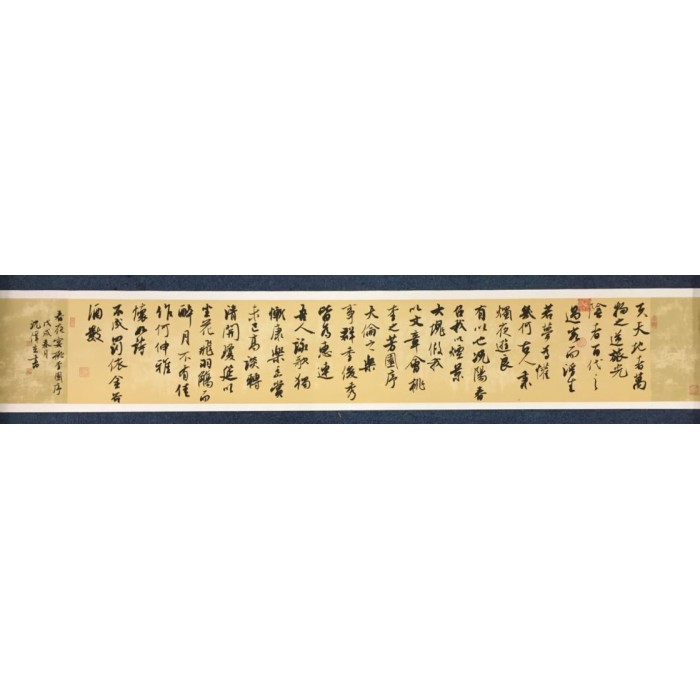 夫天地者萬
物之逆旅光
陰者百代之
過客而浮生
若夢為懽
幾何古人秉
燭夜遊良
有以也況陽春
召我以煙景
大塊假我
以文章會桃
李之芳園序
天倫之樂
事群季俊秀
皆為惠連
吾人詠歌獨
慚康樂幽賞
未已高談轉
清開瓊筵以
坐花飛羽觴而
醉月不有佳
作何伸雅
懷如詩
不成罰依金谷
酒數
春夜宴桃李園序
戊戌春月